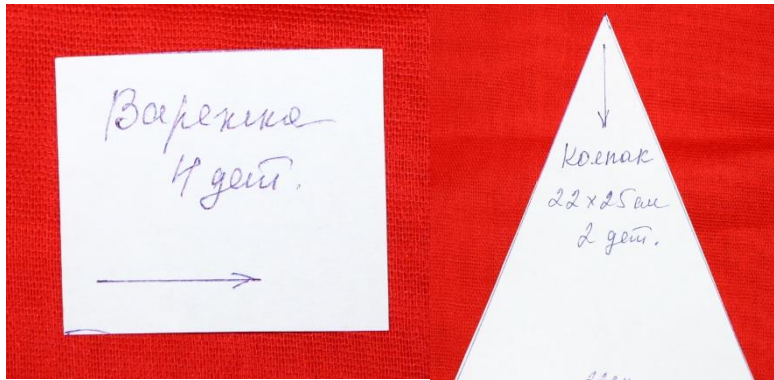 Варежка
4 дет.
Колпак
22x25см
2 дет.